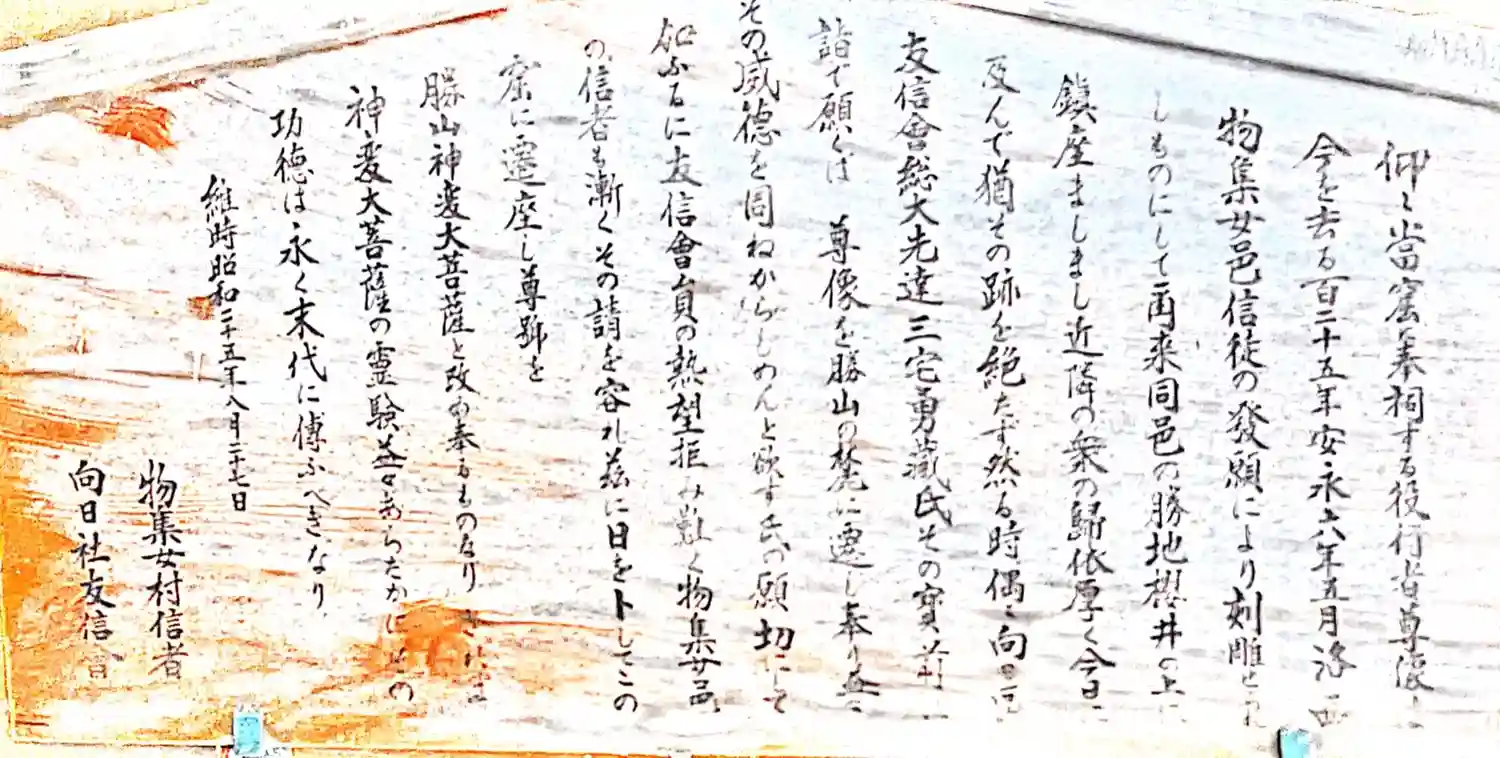 仰々當窟奉祠する役行者尊像は
今を去る百二十五年安永六年五月洛西
物集女邑信徒の發願により刻雕せられ
しものにして爾来同邑の勝地櫻井の上に
鎮座ましまし近隣の衆の歸依厚く今日に
及んで猶その跡を絶たず然る時偶々向日町
友信會総大先達三宅勇蔵氏その寳前に
詣で願くば 尊像を勝山の麓に遷し奉り益々
その威德を周ねからしめんと欲す氏の願切にして
加ふるに友信會員の熱望拒み難く物集女邑
の信者も漸くその請を容れ茲に日をトしてこの
窟に遷座し尊號を
勝山神変大菩薩と改め奉るものなり
神変大菩薩の霊験益々あらたかに その
功徳は永く末代に傳ふべきなり
維時昭和二十五年八月二十七日
物集女村信者
向日社友信會